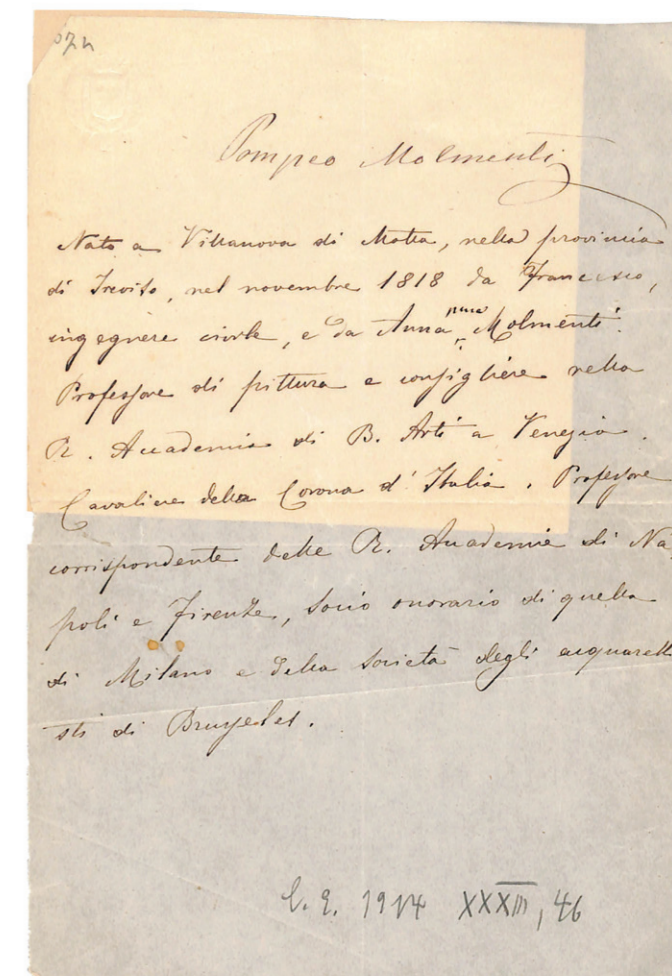 Pompeo Molmenti
Nato a Villanova di Motta, nella provincia
di Treviso, nel novembre 1818 da Francesco,
ingegnere civile, e da Anna pure Molmenti.
Professore di pittura e consigliere nella
R. Accademia di B. Arti a Venezia.
Cavaliere della Corona d'Italia. Professore
corrispondente delle R. Accademie di Na
poli e Firenze, socio onorario di quella
di Milano e della società degli acquarelli
sti di Bruxelles.
C. E. 1914 XXXIII, 46